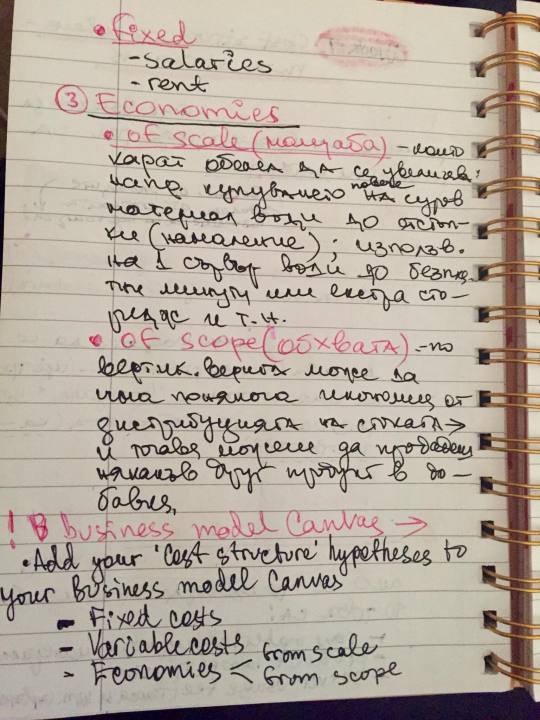 • fixed
- salaries
- rent
③ Economies
• of scale (мащаба) - които
карат обема да се увеличава:
напр. купуването на повече суров
материал води до отстъп-
ки (намаление); използв.
на 1 сървър води до безпла-
тни минути или екстра сто-
ридж и т.н.
• of scope (обхвата) - по
вертик. верига може да
има понякога икономии от
дистрибуцията на стоката →
и тогава можеш да продадеш
някакъв друг продукт в до-
бавка,
! В business model Canvas →
• Add your 'Cost structure' hypotheses to
your Business model Canvas
- Fixed costs
- Variable costs
- Economies < from scale
from scope